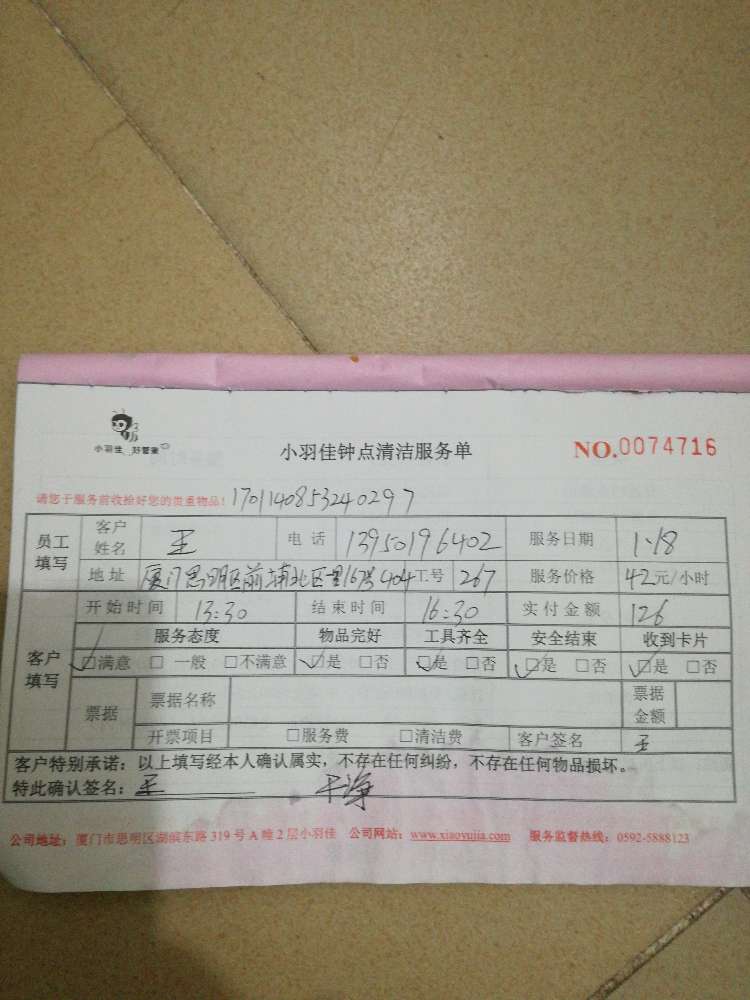 小羽佳 好管家
小羽佳钟点清洁服务单
NO.0074716
请您于服务前收拾好您的贵重物品! 1701140853240297
员工填写 客户姓名 王 电话 13950196402 服务日期 1.18
地址 厦门思明区前埔北区里167号404 工号 267 服务价格 42元/小时
客户填写 开始时间 13:30 结束时间 16:30 实付金额 126
服务态度 物品完好 工具齐全 安全结束 收到卡片
☑满意 □一般 □不满意 ☑是 □否 ☑是 □否 ☑是 □否 ☑是 □否
票据 票据名称 票据金额
开票项目 □服务费 □清洁费 客户签名 王
客户特别承诺：以上填写经本人确认属实，不存在任何纠纷，不存在任何物品损坏。
特此确认签名：王 干净
公司地址：厦门市思明区湖滨东路319号A幢2层小羽佳 公司网站：www.xiaoyujia.com 服务监督热线：0592-5888123